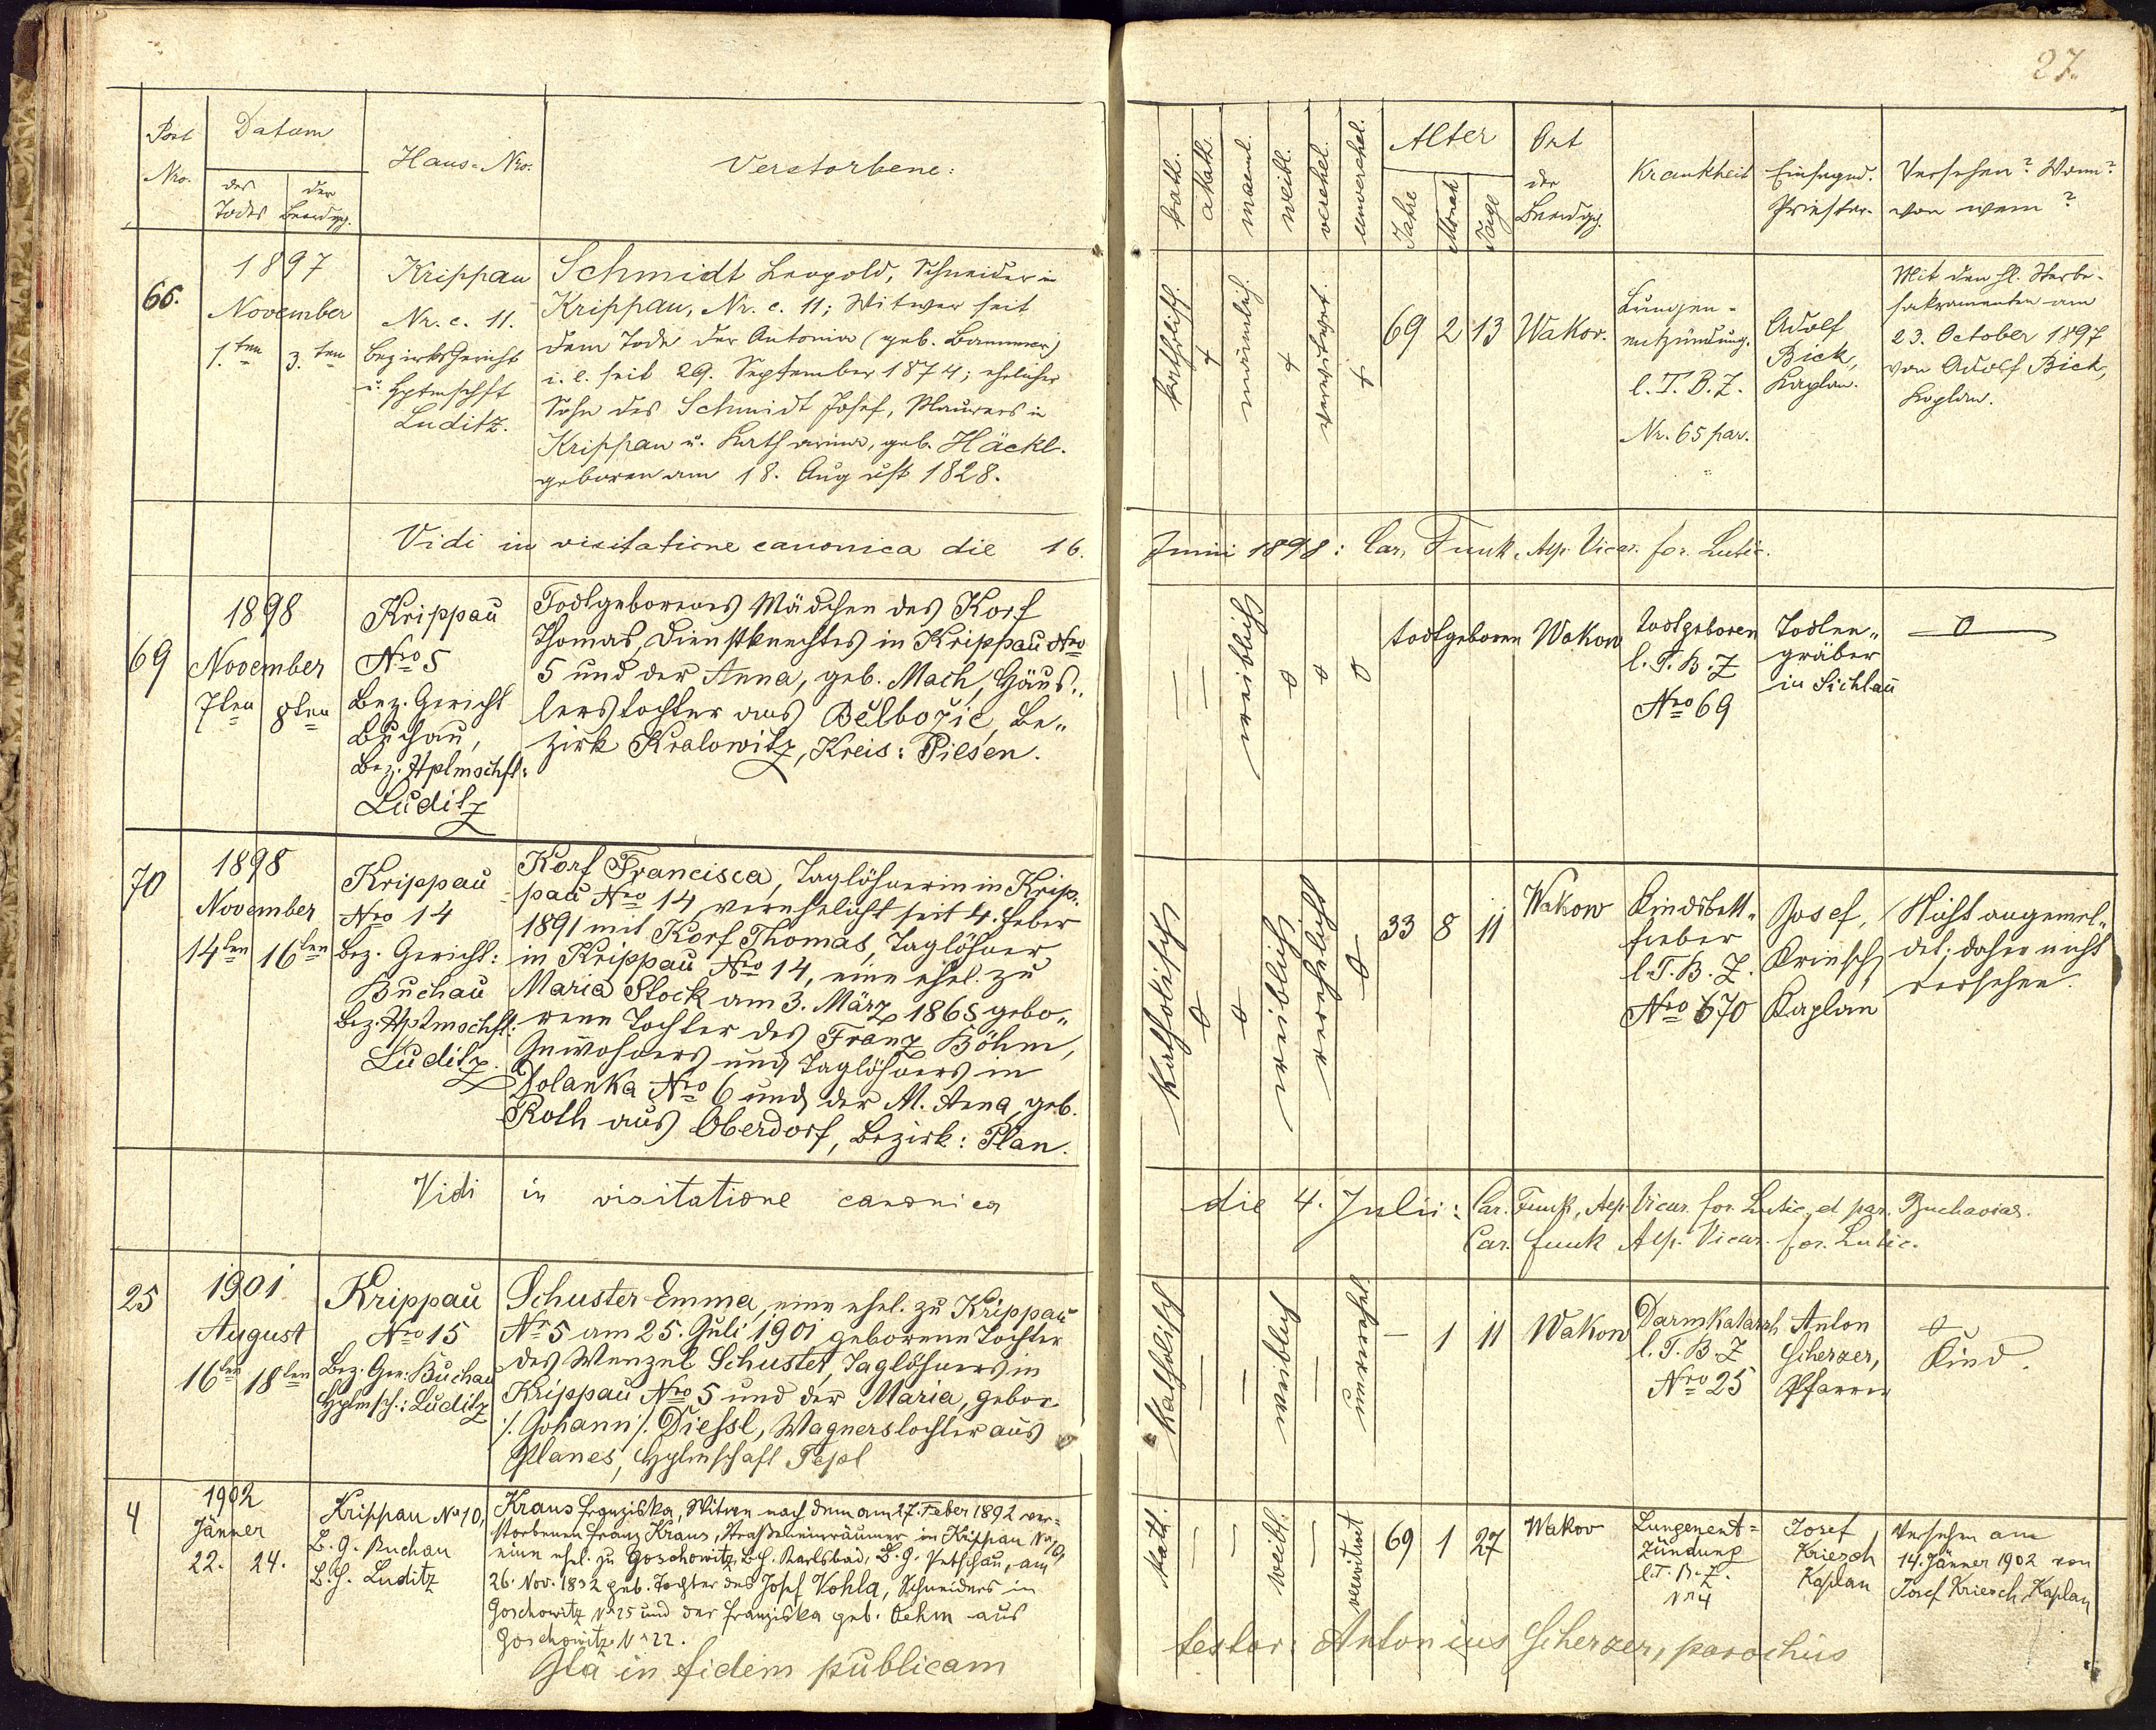 27.
Post
Nro.
Datum
des
Todes
der
Beerdgg.
Haus-Nro.
Verstorbene:
kath.
akath.
maenl.
weibl.
verehel.
unverehel.
Alter
Jahre
Monat
Tage
Ort
der
Beerdgg.
Krankheit
Einsegnd.
Priester.
Versehen? Wann?
von wem?
66.
1897
November
1.ten 3.ten
Krippau
Nr. c. 11.
Bezirksgericht
u. Hptmschft
Luditz.
Schmidt Leopold, Schneider in
Krippau, Nr. c. 11; Witwer seit
dem Tode der Antonia (geb. Bammer)
i. e. seit 29. September 1874; ehelicher
Sohn des Schmidt Josef, Maurers in
Krippau u. Katharina, geb. Häckl.
geboren am 18. August 1828.
katholisch.
männlich.
verwitwet.
69 2 13
Wakow.
Lungen-
entzündung.
l. T. B. Z.
Nr. 65 par.
Adolf
Bick,
Kaplan.
Mit den hl. Sterbe-
sakramenten am
23. October 1897
von Adolf Bick,
Kaplan.
Vidi in visitatione canonica die 16.
Junii 1898: Car. Funk, Aep. Vicar. for. Lutic.
69
1898
November
7ten 8ten
Krippau
Nro 5
Bez. Gericht
Buchau,
Bez. Hptmschft:
Luditz
Todtgeborenes Mädchen des Korf
Thomas, Dienstknechtes in Krippau Nro
5 und der Anna, geb. Mach, Häus-
lerstochter aus Bělbožic, Be-
zirk Kralowitz, Kreis: Pilsen.
weiblich
todtgeboren
Wakow
todtgeboren
l. T. B. Z
Nro 69
Todten-
gräber
in Sichlau
0
70
1898
November
14ten 16ten
Krippau
Nro 14
Bez. Gericht:
Buchau
Bez. Hptmschft:
Luditz.
Korf Francisca, Taglöhnerin in Krip-
pau Nro 14 verehelicht seit 4. Feber
1891 mit Korf Thomas, Taglöhner
in Krippau Nro 14, eine ehel. zu
Maria Stock am 3. März 1865 gebo-
rene Tochter des Franz Böhm,
Inwohners und Taglöhners in
Dolanka Nro 6 und der M. Anna, geb.
Roth aus Oberdorf, Bezirk: Plan.
katholisch
weiblich
verehelicht
33 8 11
Wakow
Kindbett-
fieber
l. T. B. Z.
Nro 670
Josef
Kriesch,
Kaplan
Nicht angemel-
det; daher nicht
versehen.
Vidi in visitatione canonica
die 4. Julii: Car. Funk, Aep. Vicar. for. Lutic. et par. Buchaviae.
Car. Funk Aep. Vicar. for. Lutic.
25
1901
August
16ten 18ten
Krippau
Nro 15
Bez. Ger: Buchau
Hptmsch.: Luditz
Schuster Emma, eine ehel. zu Krippau
Nr 5 am 25. Juli 1901 geborene Tochter
des Wenzel Schuster, Taglöhners in
Krippau Nro 5 und der Maria, gebor.
/: Johann :/ Diessl, Wagnerstochter aus
Planes, Hptmschaft Tepl
katholisch
weiblich
unverehel.
1 11
Wakow
Darmkatarrh
l. T. B. Z
Nro 25
Anton
Scherzer,
Pfarrer
Kind.
4
1902
Jänner
22. 24.
Krippau No 10,
B. G. Buchau
B. H. Luditz
Kraus Franziska, Witwe nach dem am 27. Feber 1892 ver-
storbenen Franz Kraus, Straßeneinräumer in Krippau No 10,
eine ehel. zu Goschowitz, B.H. Karlsbad, B. G. Petschau, am
26. Nov. 1832 geb. Tochter des Josef Vohla, Schneiders in
Goschowitz No 25 und der Franziska geb. Oehm aus
Goschowitz No 22.
kath.
weibl.
verwitwet
69 1 27
Wakov
Lungenent=
zündung
l. T. B. Z.
No 4
Josef
Kriesch
Kaplan
Versehen am
14. Jänner 1902 von
Josef Kriesch, Kaplan
Ita in fidem publicam
testor: Antonius Scherzer, parochus